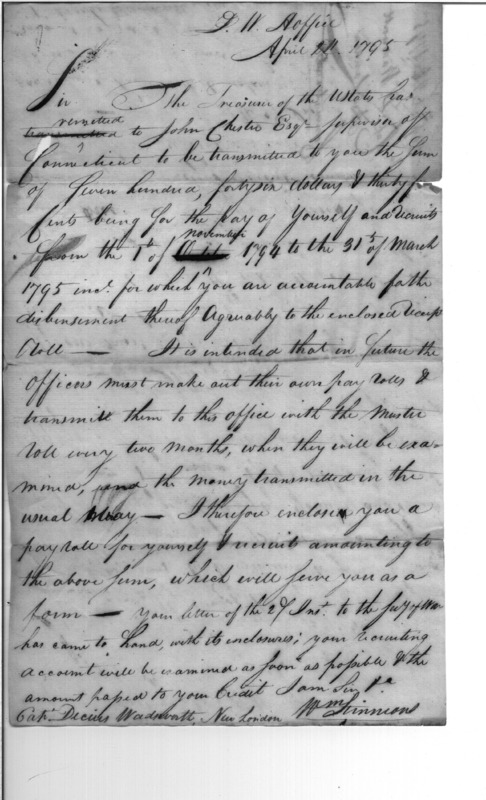 D. W. Hoffice
April 1795
Sir The Treasurer of the UStates has
remitted
transmitted to John Chester Esqr. Supervisor of
Connecticut to be transmitted to you the Sum
of Seven hundred, forty six dollars & thirty
Cents being for the pay of Yourself and recruits
November
from the 1st of Octr. 1794 to the 31st of March
1795 incl. for which you are accountable for the
disbursement thereof Agreuably to the enclosed receipt
Roll — It is intended that in future the
Officers must make out their own pay rolls &
transmit them to this office with the Muster
roll every two month, when they will be exa-
mined, and the money transmitted in the
usual Way — I therefore enclose you a
pay roll for yourself & recruits amounting to
the above Sum, which will serve you as a
form — Your letter of the 2d Inst. to the Secy of War
has come to hand, with its enclosures; your recruiting
account will be examined as soon as possible & the
amount passed to your Credit I am Sir &a
Wm Simmons
Capt. Decius Wadswatt, New London